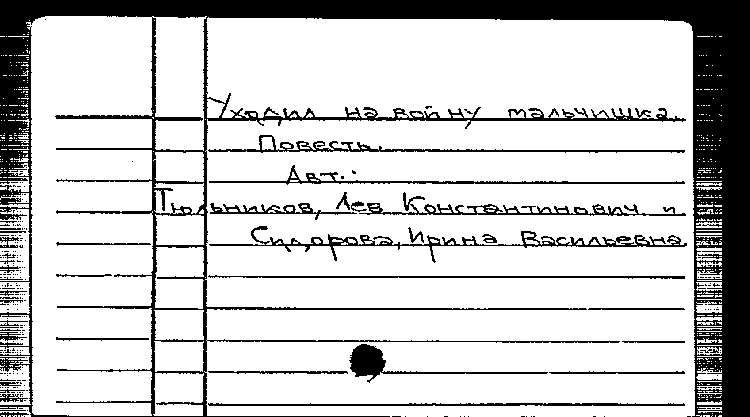 Уходил на войну мальчишка.
Повесть.
Авт.:
Тюльников, Лев Константинович и
Сидорова, Ирина Васильевна